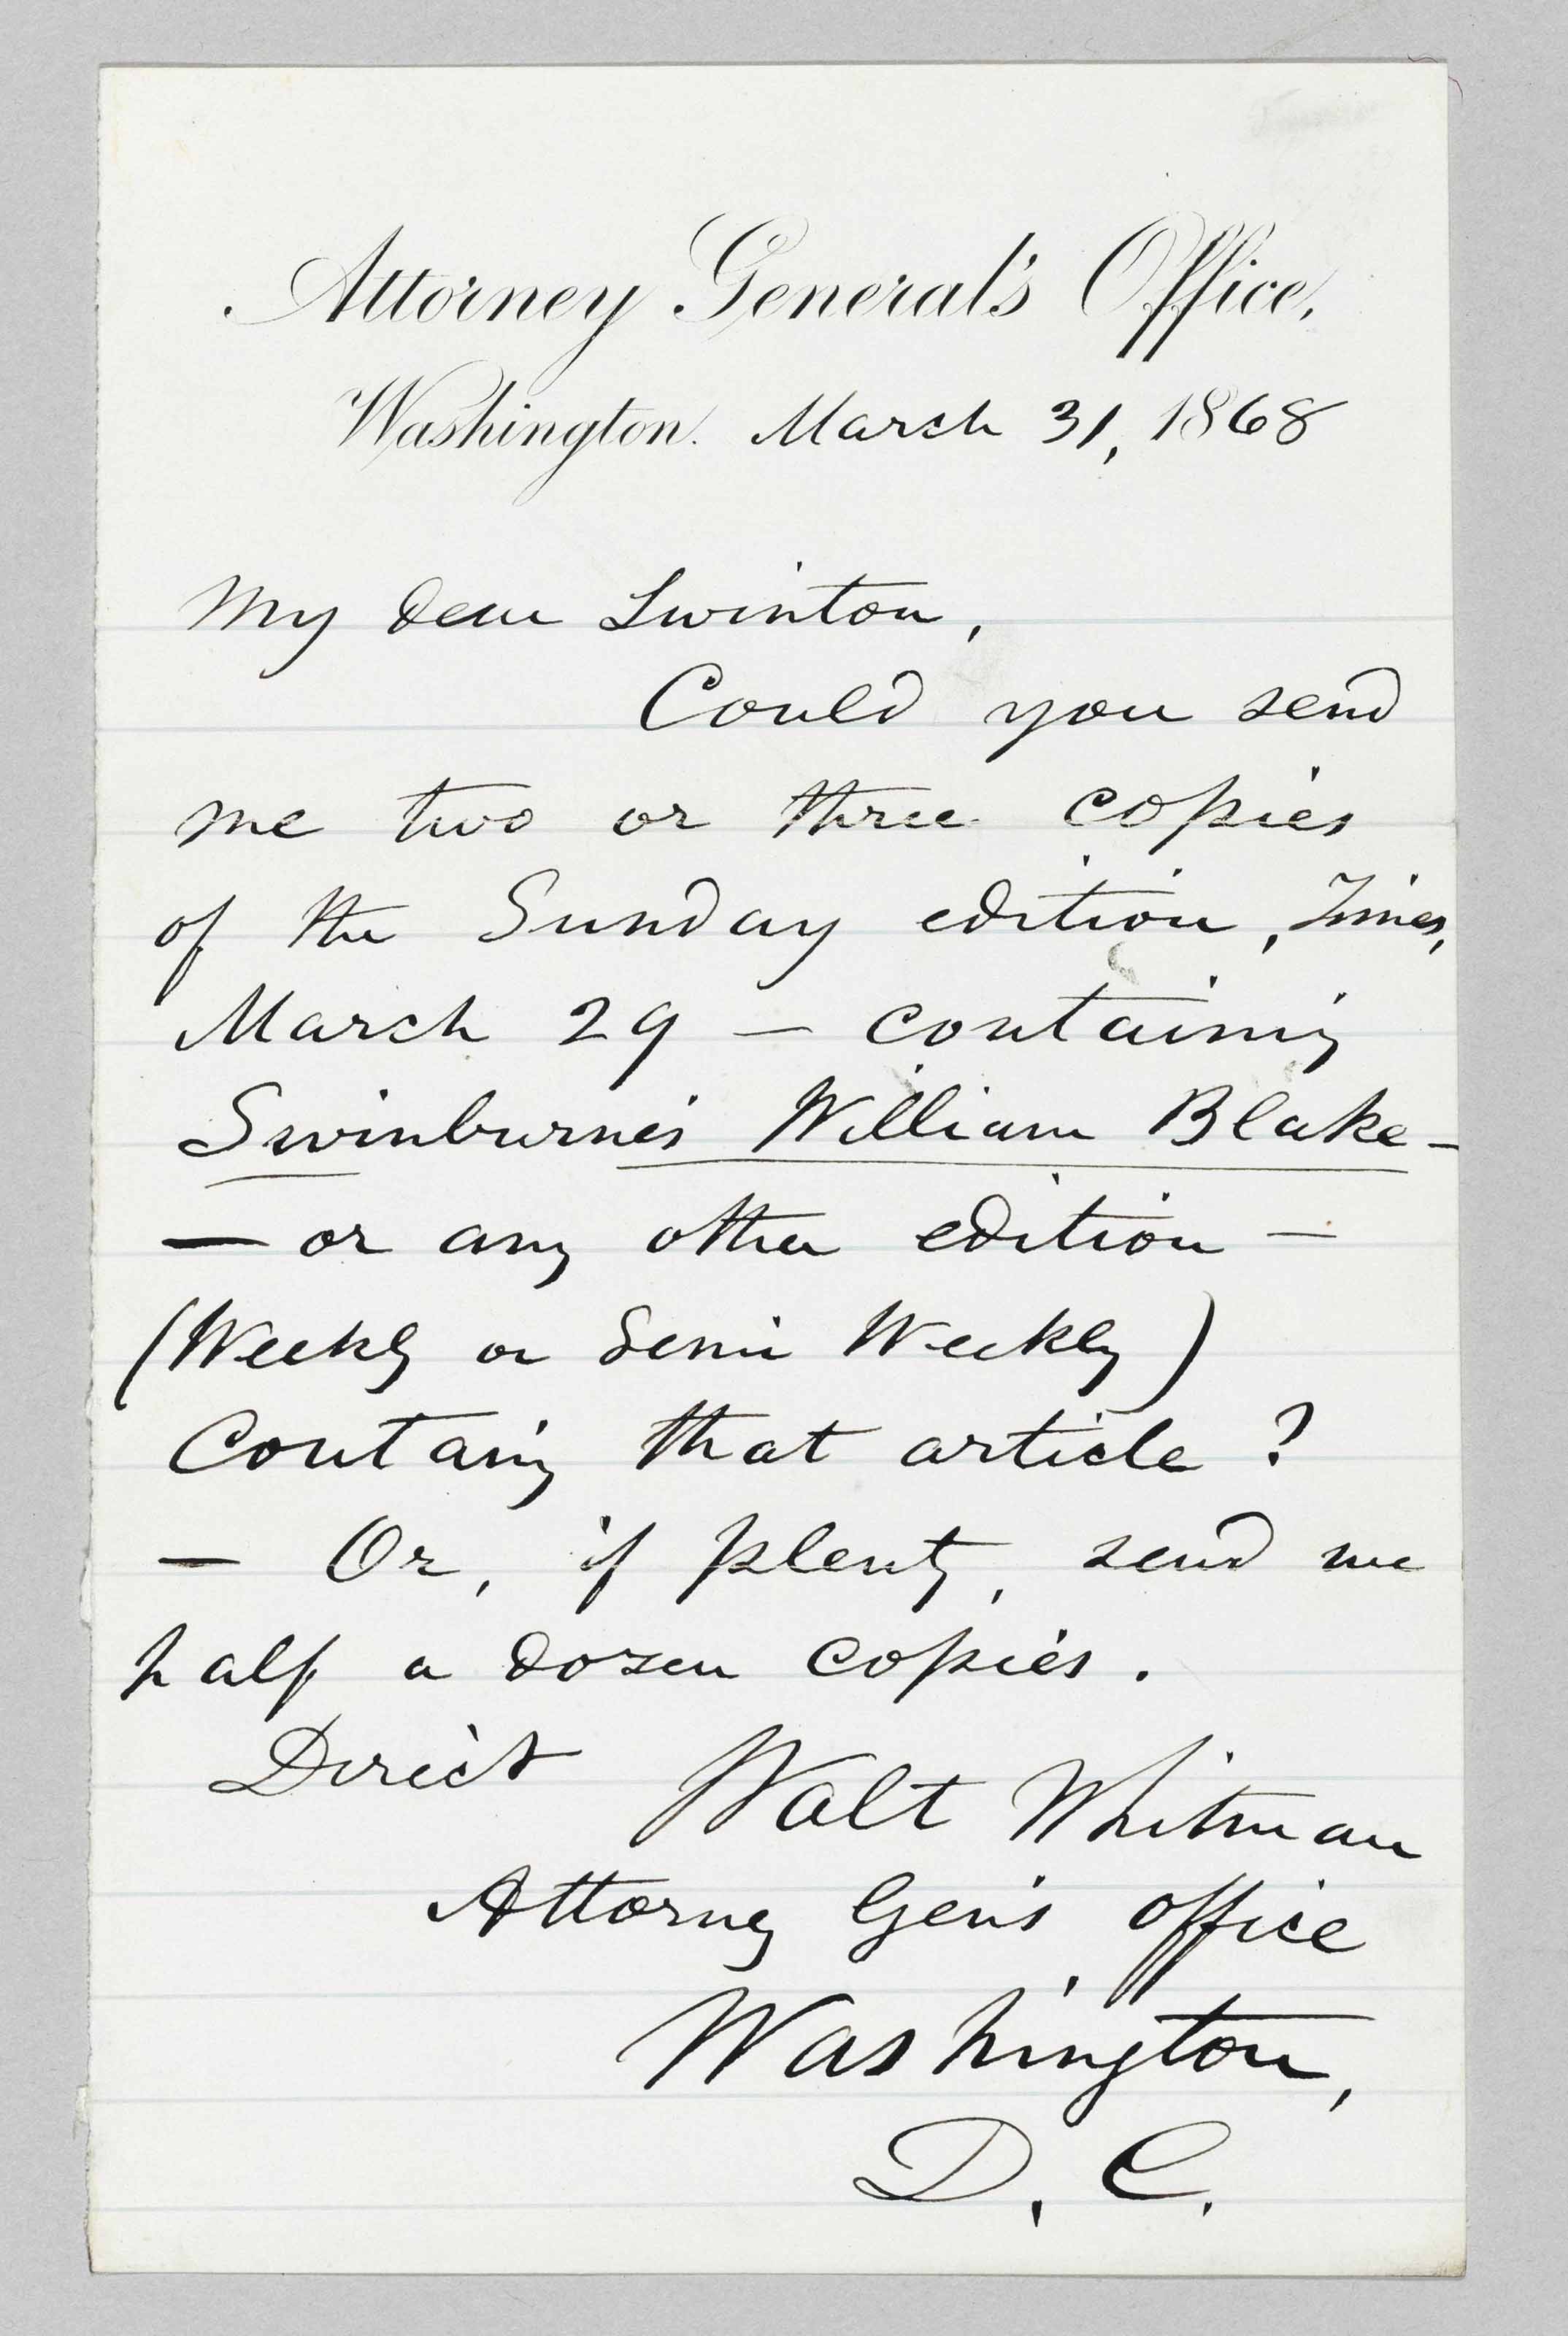 Attorney General's Office,
Washington. March 31, 1868
My dear Swinton,
Could you send
me two or three copies
of the Sunday edition, Times,
March 29 — containing
Swinburne's William Blake —
— or any other edition —
(Weekly or Semi Weekly)
Containing that article?
— Or, if plenty, send me
half a dozen copies.
Direct Walt Whitman
Attorney Gen's office
Washington,
D. C.